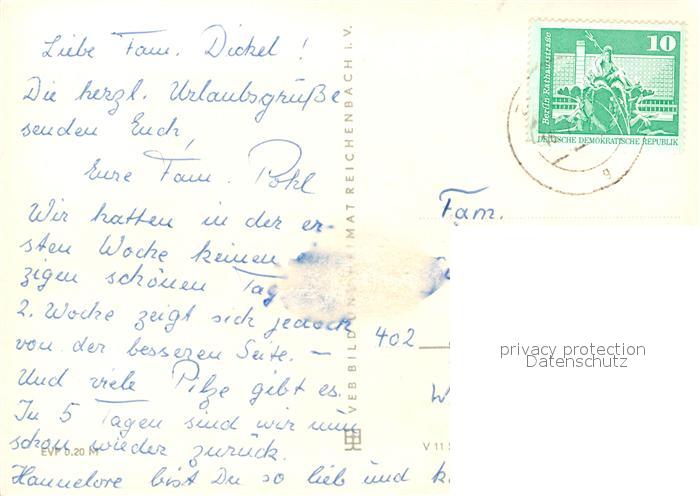 Liebe Fam. Dickel!
Die herzl. Urlaubsgrüße
senden Euch,
Eure Fam. Pohl
Wir hatten in der er-
sten Woche keinen
zigen schönen Tag
2. Woche zeigt sich jedoch
von der besseren Seite. —
Und viele Pilze gibt es.
In 5 Tagen sind wir nun
schon wieder zurück.
Hannelore bist Du so lieb und
EVP 0.20 M
VEB BILD UND HEIMAT REICHENBACH I. V.
V 11
10
Berlin, Rathausstraße
DEUTSCHE DEMOKRATISCHE REPUBLIK
Fam.
402
W
privacy protection
Datenschutz